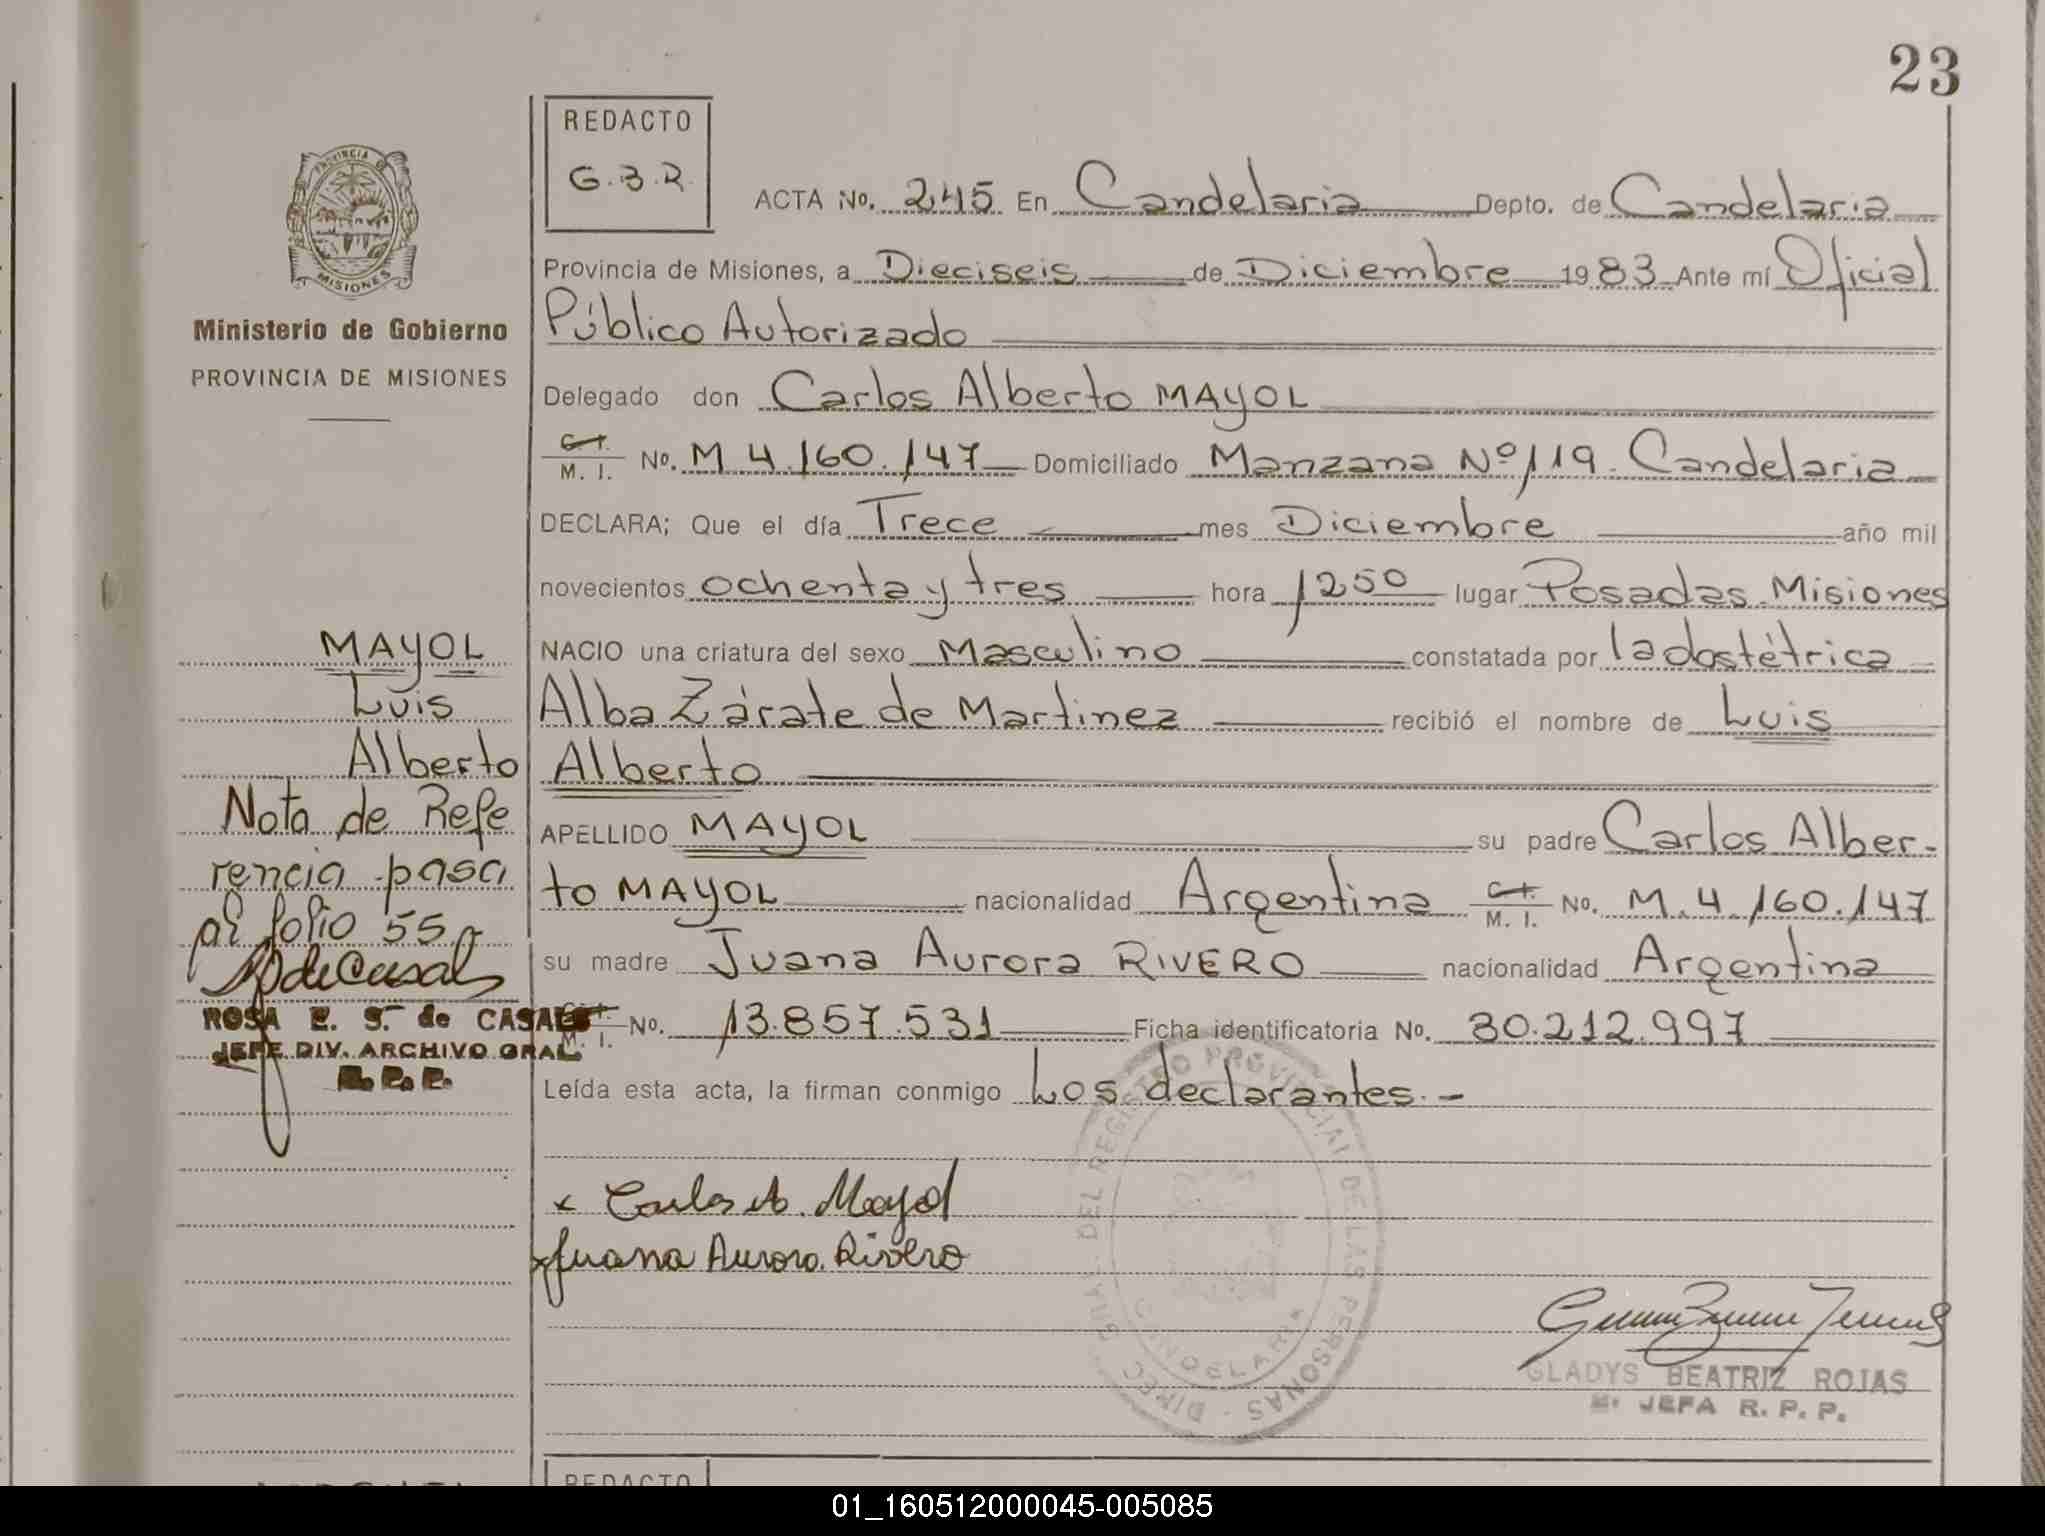 23
REDACTO
G.B.R.
PROVINCIA DE
MISIONES
Ministerio de Gobierno
PROVINCIA DE MISIONES
ACTA No. 245 En Candelaria Depto. de Candelaria
Provincia de Misiones, a Dieciseis de Diciembre 1983 Ante mí Oficial
Público Autorizado
Delegado don Carlos Alberto MAYOL
C.I. M. I. No. M 4.160.147 Domiciliado Manzana Nº 119. Candelaria
DECLARA; Que el día Trece mes Diciembre año mil
novecientos ochenta y tres hora 1250 lugar Posadas Misiones
NACIO una criatura del sexo Masculino constatada por la obstétrica
Alba Zárate de Martinez recibió el nombre de Luis
Alberto
APELLIDO MAYOL su padre Carlos Alber-
to MAYOL nacionalidad Argentina C.I. M. I. No. M.4.160.147
su madre Juana Aurora RIVERO nacionalidad Argentina
C.I. M. I. No. 13.857.531 Ficha identificatoria No. 30.212.997
Leída esta acta, la firman conmigo Los declarantes.-
MAYOL
Luis
Alberto
Nota de Refe
rencia pasa
al folio 55
ROSA E. S. de CASALS
JEFE DIV. ARCHIVO GRAL
R. P. P.
x Carlos A. Mayol
x Juana Aurora Rivero
DIREC. GRAL. DEL REGISTRO PROVINCIAL DE LAS PERSONAS
CANDELARIA
GLADYS BEATRIZ ROJAS
JEFA R. P. P.
REDACTO
01_160512000045-005085